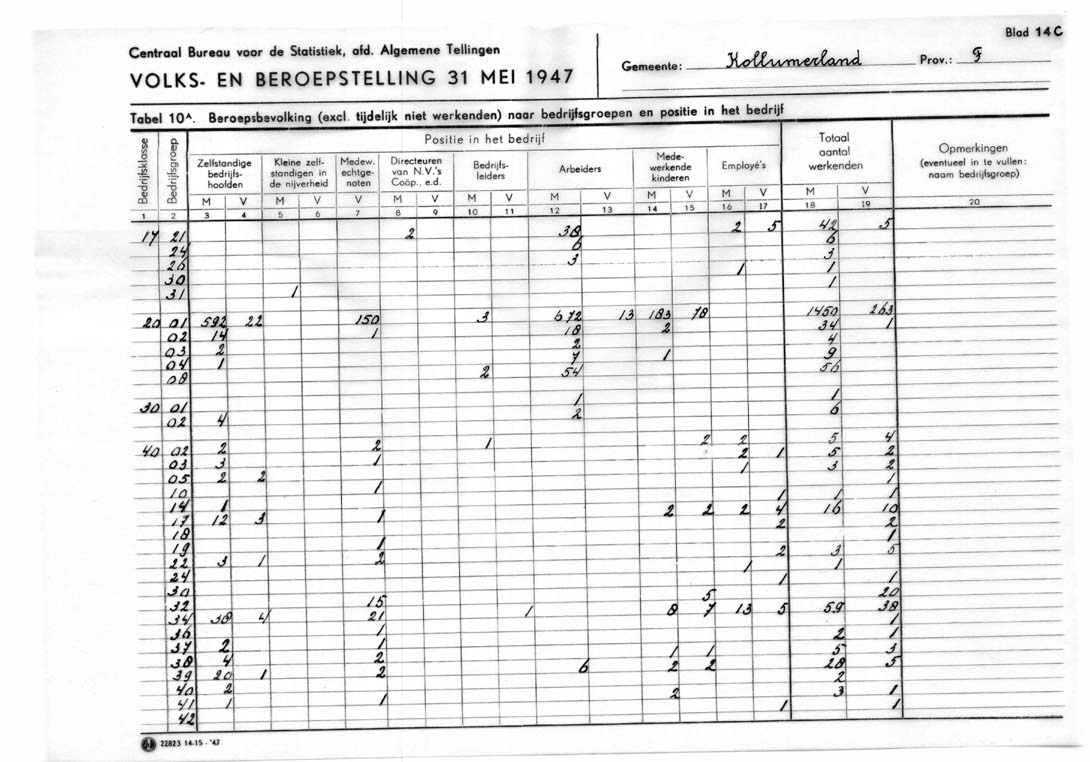 Blad 14C
Centraal Bureau voor de Statistiek, afd. Algemene Tellingen
VOLKS- EN BEROEPSTELLING 31 MEI 1947
Gemeente: Kollumerland Prov.: F
Tabel 10A. Beroepsbevolking (excl. tijdelijk niet werkenden) naar bedrijfsgroepen en positie in het bedrijf
Bedrijfsklasse Bedrijfsgroep Positie in het bedrijf Totaal aantal werkenden Opmerkingen (eventueel in te vullen: naam bedrijfsgroep)
Zelfstandige bedrijfs-hoofden Kleine zelf-standigen in de nijverheid Medew. echtge-noten Directeuren van N.V.'s Coöp., e.d. Bedrijfs-leiders Arbeiders Mede-werkende kinderen Employé's
M V M V V M V M V M V M V M V M V
1 2 3 4 5 6 7 8 9 10 11 12 13 14 15 16 17 18 19 20
17 21 2 38 2 5 42 5
24 6 6
26 3 3
30 1 1
31 1 1
20 01 592 22 150 3 672 13 183 78 1450 263
02 14 1 18 2 34 1
03 2 2 4
04 1 7 1 9
08 2 54 56
30 01 1 1
02 4 2 6
40 02 2 2 1 2 2 5 4
03 3 1 2 1 5 2
05 2 2 1 3 2
10 1 1
14 1 1 1 1
17 12 3 1 2 2 2 4 16 10
18 2 2
19 1 1
22 3 1 2 2 3 5
24 1 1
30 1 1
32 15 5 20
34 38 4 21 1 8 7 13 5 59 38
36 1 1
37 2 1 2 1
38 4 2 1 1 5 3
39 20 1 2 6 2 2 28 5
40 2 2
41 1 1 2 3 1
42 1 1
22823 14-15 - '47